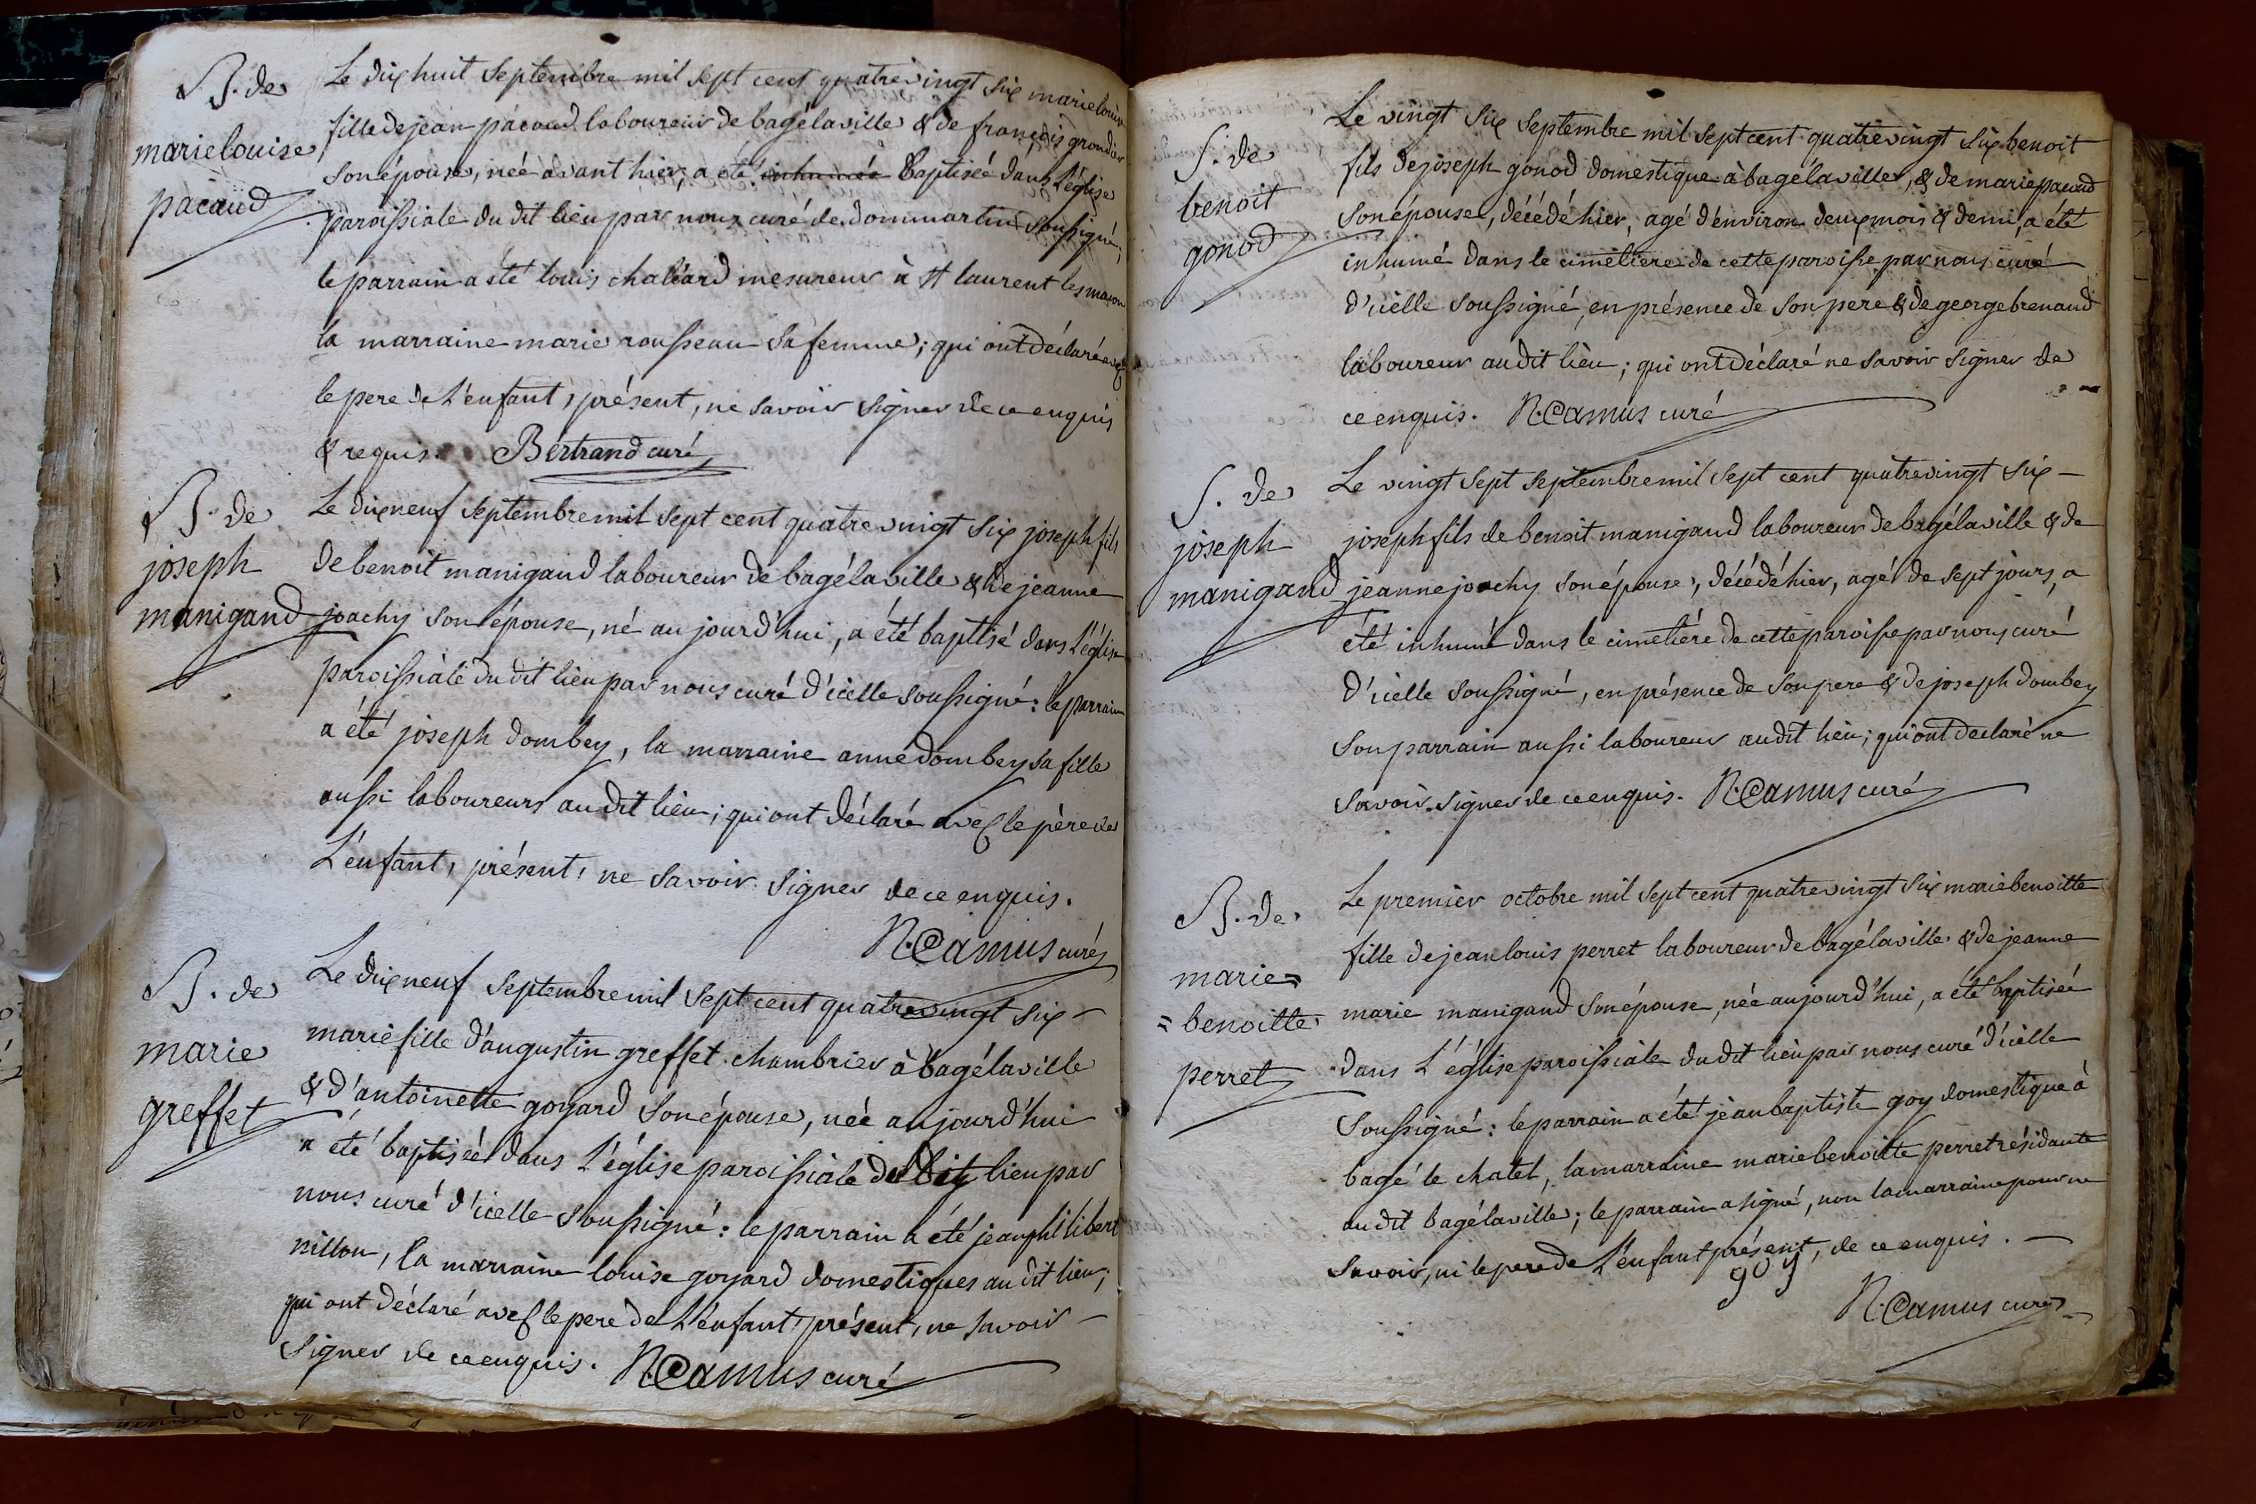 B. de
marie louise
pacaud
Le dix huit septembre mil sept cent quatre vingt six marie louise
fille de jean pacaud laboureur de bagé la ville & de françois grondin
son épouse, née avant hier, a été inhumée baptisée dans l'église
paroissiale du dit lieu par nous curé de dommartin soussigné,
le parrain a été louis chaléard mesureur à st laurent les macon
la marraine marie rousseau sa femme; qui ont déclaré avec
le pere de l'enfant, présent, ne savoir signer de ce enquis
& requis. Bertrand curé
B. de
joseph
manigand
Le dix neuf septembre mil sept cent quatre vingt six joseph fils
de benoit manigand laboureur de bagé la ville & de jeanne
joachy son épouse, né aujourd'hui, a été baptisé dans l'église
paroissiale du dit lieu par nous curé d'icelle soussigné: le parrain
a été joseph dombey, la marraine anne dombey sa fille
aussi laboureurs au dit lieu; qui ont déclaré avec le père de
L'enfant, présent, ne savoir signer de ce enquis.
N. Camus curé
B. de
marie
greffet
Le dix neuf septembre mil sept cent quatre vingt six
marie fille d'augustin greffet chambrier à bagé la ville
& d'antoinette goyard son épouse, née aujourd'hui
a été baptisée dans l'église paroissiale du dit lieu par
nous curé d'icelle soussigné: le parrain a été jean philibert
nillon, la marraine louise goyard domestiques au dit lieu;
qui ont déclaré avec le pere de l'enfant, présent, ne savoir
signer de ce enquis. N. Camus curé
S. de
benoit
gonod
Le vingt six septembre mil sept cent quatre vingt six benoit
fils de joseph gonod domestique à bagé la ville, & de marie pacaud
son épouse, décédé hier, agé d'environ deux mois & demi, a été
inhumé dans le cimetiere de cette paroisse par nous curé
d'icelle soussigné, en présence de son pere & de george brenaud
laboureur au dit lieu; qui ont déclaré ne savoir signer de
ce enquis. N. Camus curé
S. de
joseph
manigand
Le vingt sept septembre mil sept cent quatre vingt six
joseph fils de benoit manigand laboureur de bagé la ville & de
jeanne joachy son épouse, décédé hier, agé de sept jours, a
été inhumé dans le cimetière de cette paroisse par nous curé
d'icelle soussigné, en présence de son pere & de joseph dombey
son parrain aussi laboureur au dit lieu; qui ont declaré ne
savoir signer de ce enquis. N. Camus curé
B. de
marie
= benoitte
perret
Le premier octobre mil sept cent quatre vingt six marie benoitte
fille de jean louis perret laboureur de bagé la ville & de jeanne
marie manigand son épouse, née aujourd'hui, a été baptisée
dans L'église paroissiale du dit lieu par nous curé d'icelle
soussigné: le parrain a été jean baptiste goy domestique à
bagé le chatel, la marraine marie benoitte perret résidante
au dit bagé la ville; le parrain a signé, non la marraine pour ne
savoir, ni le pere de l'enfant présent, de ce enquis.
goy
N. Camus curé